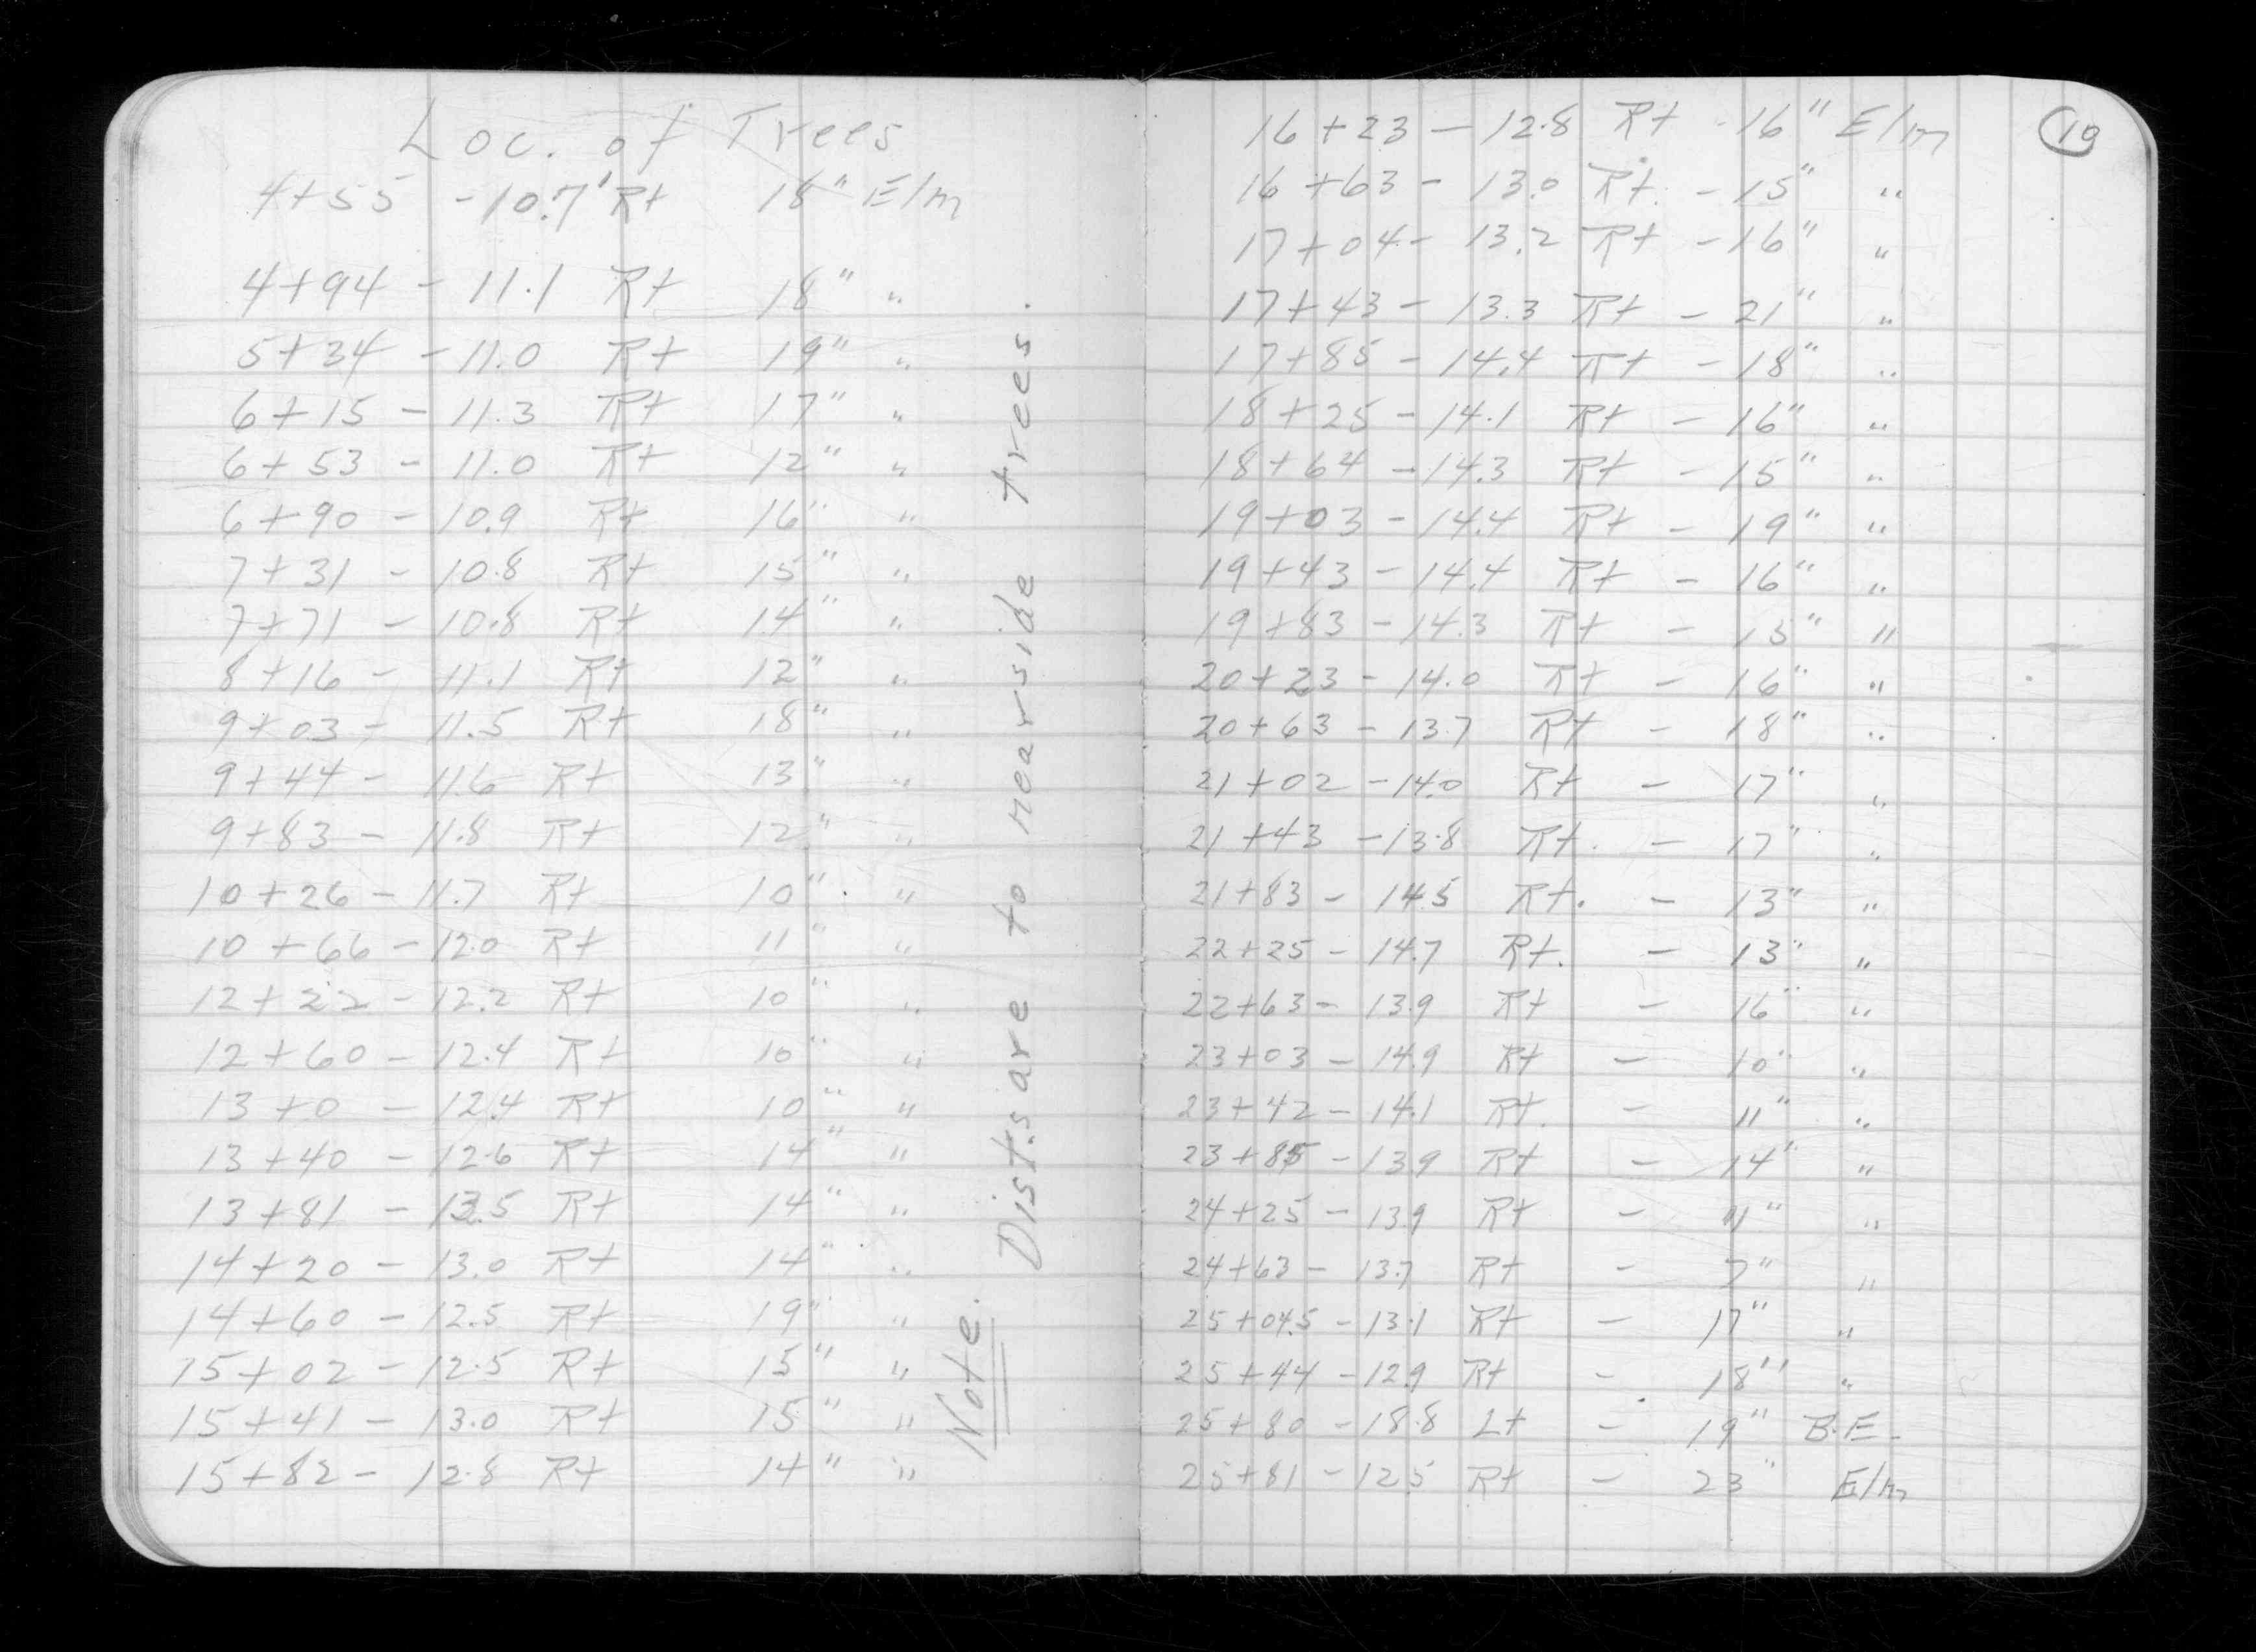 Loc. of Trees
4+55 - 10.7' Rt 18" Elm
4+94 - 11.1 Rt 18" "
5+34 - 11.0 Rt 19" "
6+15 - 11.3 Rt 17" "
6+53 - 11.0 Rt 12" "
6+90 - 10.9 Rt 16" "
7+31 - 10.8 Rt 15" "
7+71 - 10.8 Rt 14" "
8+16 - 11.1 Rt 12" "
9+03 - 11.5 Rt 18" "
9+44 - 11.6 Rt 13" "
9+83 - 11.8 Rt 12" "
10+26 - 11.7 Rt 10" "
10+66 - 12.0 Rt 11" "
12+22 - 12.2 Rt 10" "
12+60 - 12.4 Rt 10" "
13+0 - 12.4 Rt 10" "
13+40 - 12.6 Rt 14" "
13+81 - 13.5 Rt 14" "
14+20 - 13.0 Rt 14" "
14+60 - 12.5 Rt 19" "
15+02 - 12.5 Rt 15" "
15+41 - 13.0 Rt 15" "
15+82 - 12.8 Rt 14" "
Note. Dists are to nearside trees.
19
16+23 - 12.8 Rt - 16" Elm
16+63 - 13.0 Rt. - 15" "
17+04 - 13.2 Rt - 16" "
17+43 - 13.3 Rt - 21" "
17+85 - 14.4 Rt - 18" "
18+25 - 14.1 Rt - 16" "
18+64 - 14.3 Rt - 15" "
19+03 - 14.4 Rt - 19" "
19+43 - 14.4 Rt - 16" "
19+83 - 14.3 Rt - 15" "
20+23 - 14.0 Rt - 16" "
20+63 - 13.7 Rt - 18" "
21+02 - 14.0 Rt - 17" "
21+43 - 13.8 Rt. - 17" "
21+83 - 14.5 Rt. - 13" "
22+25 - 14.7 Rt. - 13" "
22+63 - 13.9 Rt - 16" "
23+03 - 14.9 Rt - 10" "
23+42 - 14.1 Rt. - 11" "
23+85 - 13.9 Rt - 14" "
24+25 - 13.9 Rt - 11" "
24+63 - 13.7 Rt - 7" "
25+04.5 - 13.1 Rt - 17" "
25+44 - 12.9 Rt - 18" "
25+80 - 18.8 Lt - 19" B.E.
25+81 - 12.5 Rt - 23" Elm